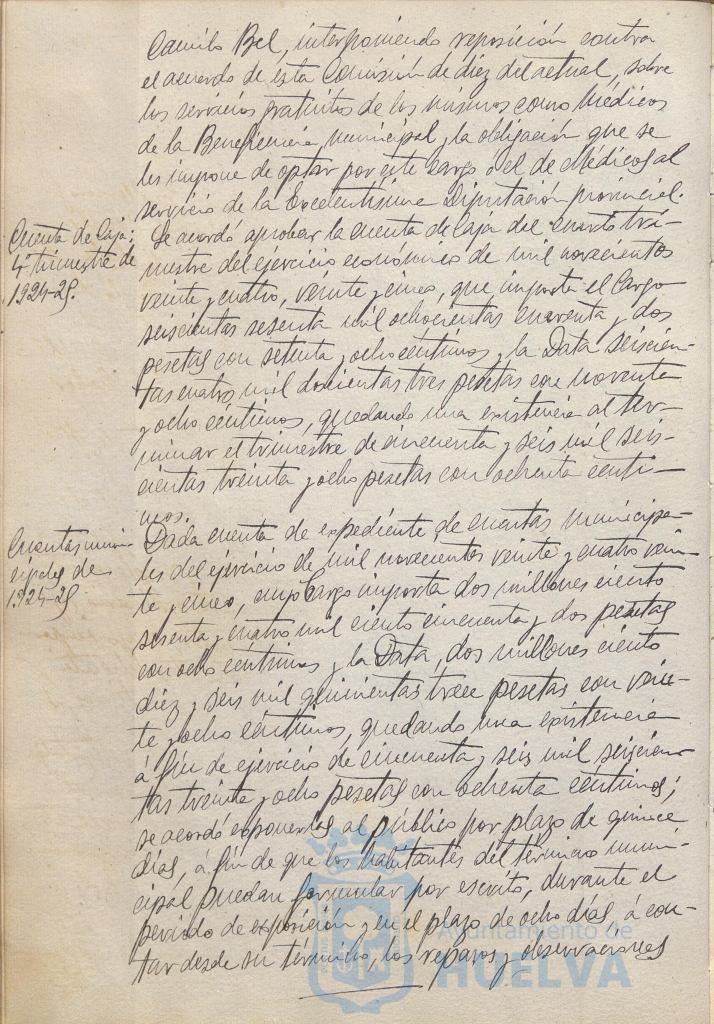 Camilo Bel, interponiendo reposición contra
el acuerdo de ésta Comisión de diez del actual, sobre
los servicios gratuitos de los mismos como Médicos
de la Beneficencia municipal y la obligación que se
les impone de optar por este cargo o el de Médicos al
servicio de la Excelentísima Diputación provincial.
Cuenta de Caja;
4º trimestre de
1924-25.
Se acordó aprobar la cuenta de Caja del cuarto tri-
mestre del ejercicio económico de mil novecientos
veinte y cuatro, veinte y cinco, que importa el Cargo
seiscientas sesenta mil ochocientas cuarenta y dos
pesetas con setenta y ocho céntimos y la Data seiscien-
tas cuatro mil doscientas tres pesetas con noventa
y ocho céntimos, quedando una existencia al ter-
minar el trimestre de cincuenta y seis mil seis-
cientas treinta y ocho pesetas con ochenta cénti-
mos.
Cuentas muni-
cipales de
1924-25
Dada cuenta de expediente de cuentas municipa-
les del ejercicio de mil novecientos veinte y cuatro vein-
te y cinco, cuyo Cargo importa dos millones ciento
sesenta y cuatro mil ciento cincuenta y dos pesetas
con ocho céntimos y la Data, dos millones ciento
diez y seis mil quinientas trece pesetas con vein-
te y ocho céntimos, quedando una existencia
á fin de ejercicio de cincuenta y seis mil seiscien-
tas treinta y ocho pesetas con ochenta céntimos;
se acordó exponerlas al público por plazo de quince
días, á fin de que los habitantes del término muni-
cipal puedan formular por escrito, durante el
periodo de exposición y en el plazo de ocho días, á con-
tar desde su término, los reparos y observaciones
Ayuntamiento de
HUELVA